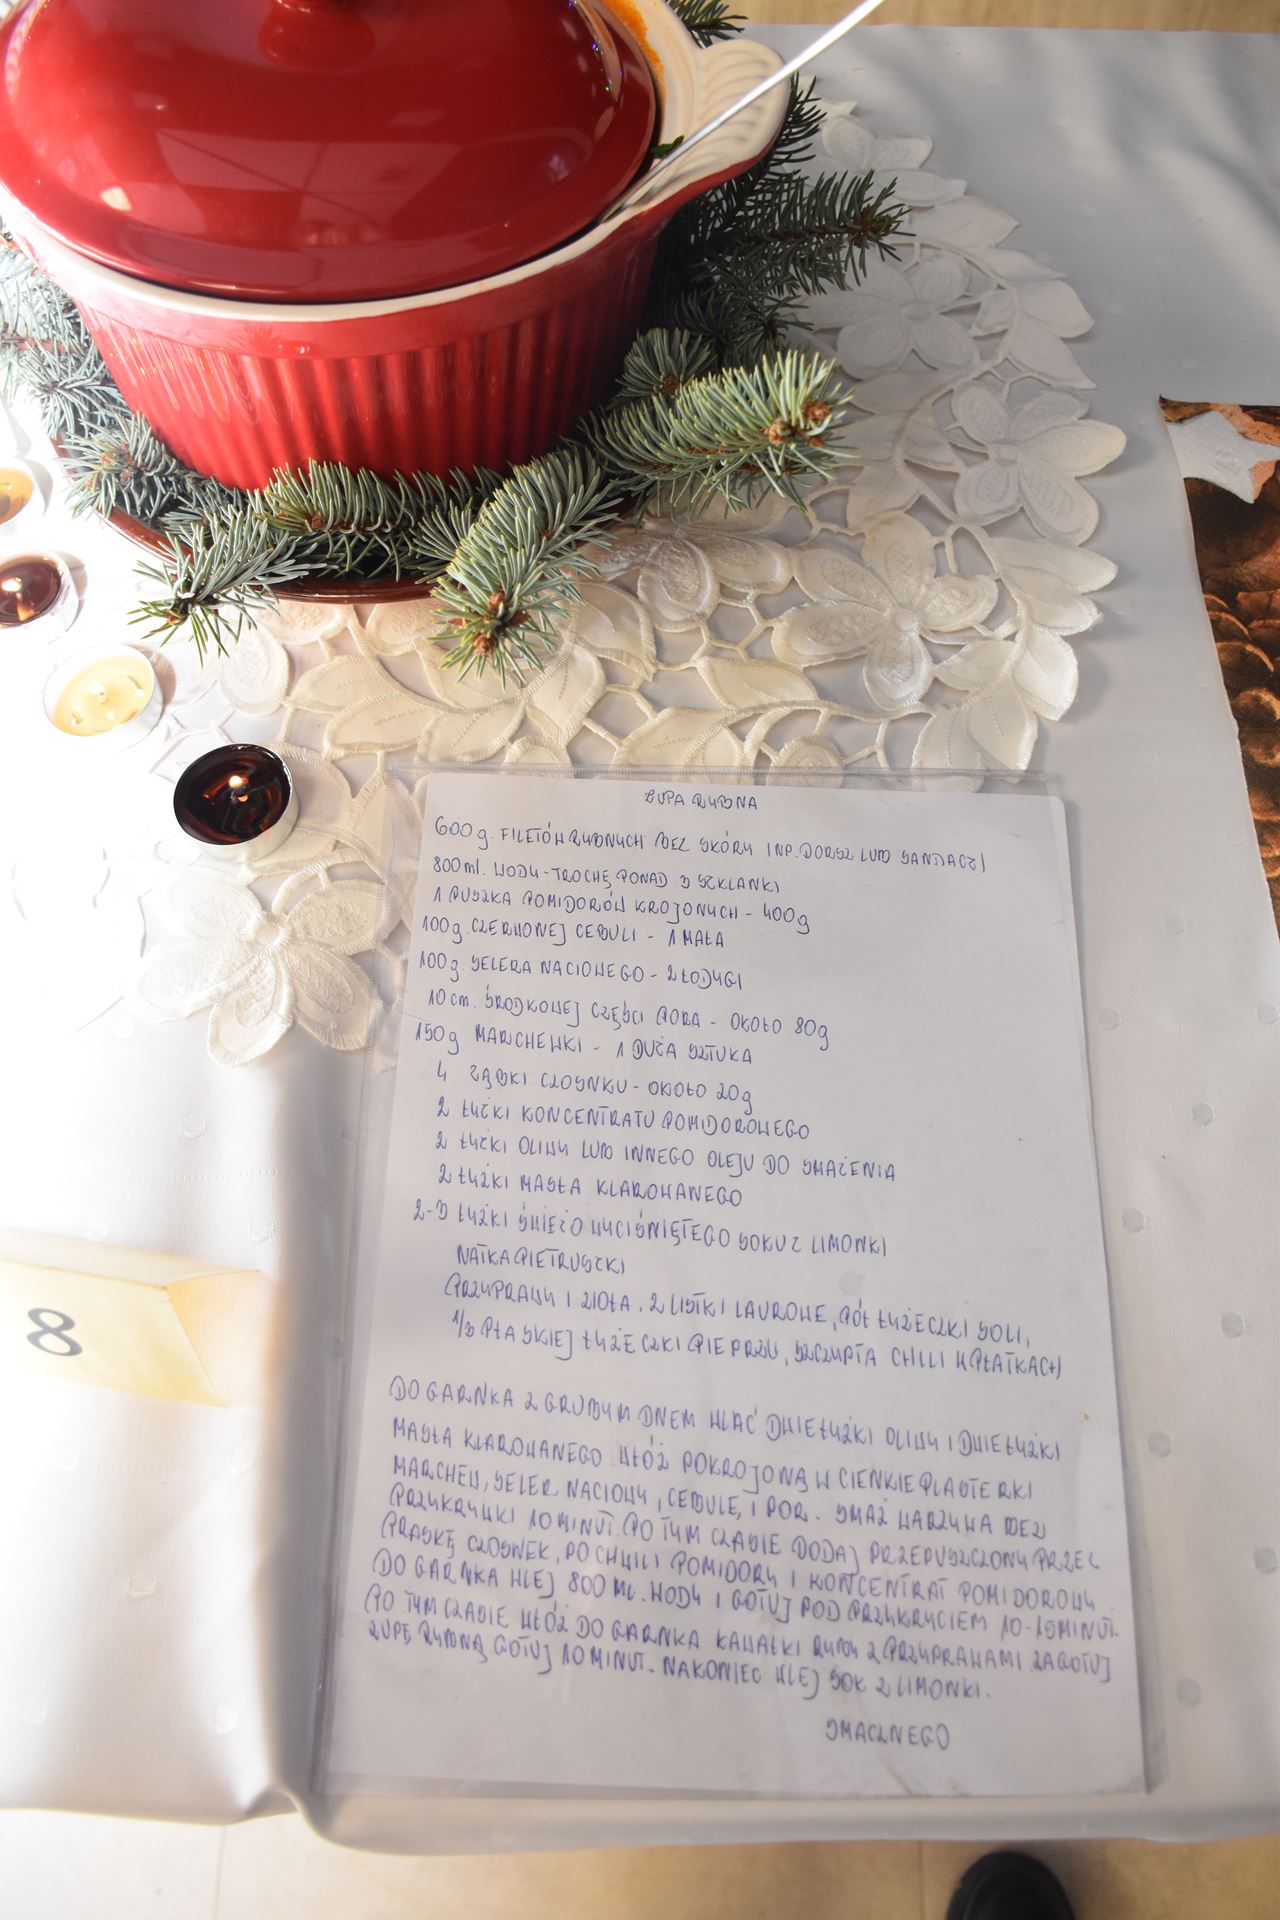 ZUPA RYBNA
600g. FILETÓW RYBNYCH BEZ SKÓRY (NP. DORSZ LUB SANDACZ)
800ml. WODY - TROCHĘ PONAD 3 SZKLANKI
1 PUSZKA POMIDORÓW KROJONYCH - 400g
100g. CZERWONEJ CEBULI - 1 MAŁA
100g. SELERA NACIOWEGO - 2 ŁODYGI
10 cm. ŚRODKOWEJ CZĘŚCI PORA - OKOŁO 80g
150g MARCHEWKI - 1 DUŻA SZTUKA
4 ZĄBKI CZOSNKU - OKOŁO 20g
2 ŁYŻKI KONCENTRATU POMIDOROWEGO
2 ŁYŻKI OLIWY LUB INNEGO OLEJU DO SMAŻENIA
2 ŁYŻKI MASŁA KLAROWANEGO
2-3 ŁYŻKI ŚWIEŻO WYCIŚNIĘTEGO SOKU Z LIMONKI
NATKA PIETRUSZKI
PRZYPRAWY I ZIOŁA. 2 LISTKI LAUROWE, PÓŁ ŁYŻECZKI SOLI,
1/3 PŁASKIEJ ŁYŻECZKI PIEPRZU, SZCZYPTA CHILI W PŁATKACH
DO GARNKA Z GRUBYM DNEM WLAĆ DWIE ŁYŻKI OLIWY I DWIE ŁYŻKI
MASŁA KLAROWANEGO WŁÓŻ POKROJONĄ W CIENKIE PLASTERKI
MARCHEW, SELER NACIOWY, CEBULĘ, I POR. SMAŻ WARZYWA BEZ
PRZYKRYWKI 10 MINUT. PO TYM CZASIE DODAJ PRZEPUSZCZONY PRZEZ
PRASKĘ CZOSNEK, PO CHWILI POMIDORY I KONCENTRAT POMIDOROWY.
DO GARNKA WLEJ 800 ML. WODY I GOTUJ POD PRZYKRYCIEM 10-15 MINUT.
PO TYM CZASIE WŁÓŻ DO GARNKA KAWAŁKI RYBY Z PRZYPRAWAMI. ZAGOTUJ
ZUPĘ RYBNĄ GOTUJ 10 MINUT. NAKONIEC WLEJ SOK Z LIMONKI.
SMACZNEGO
8